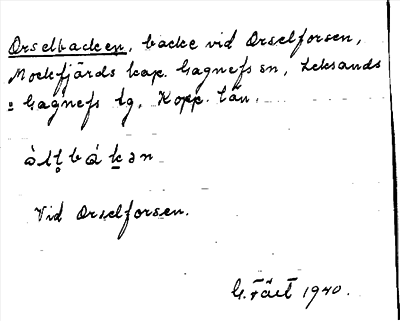 Orselbacken, backe vid Orselforsen,
Mockfjärds kap. Gagnefs sn, Leksands
o Gagnefs tg. Kopp. län.
Vid Orselforsen.
G. Fält 1940.